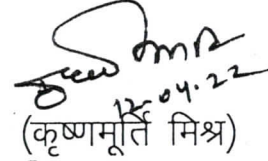 12.04.22
(कृष्णमूर्ति मिश्र)